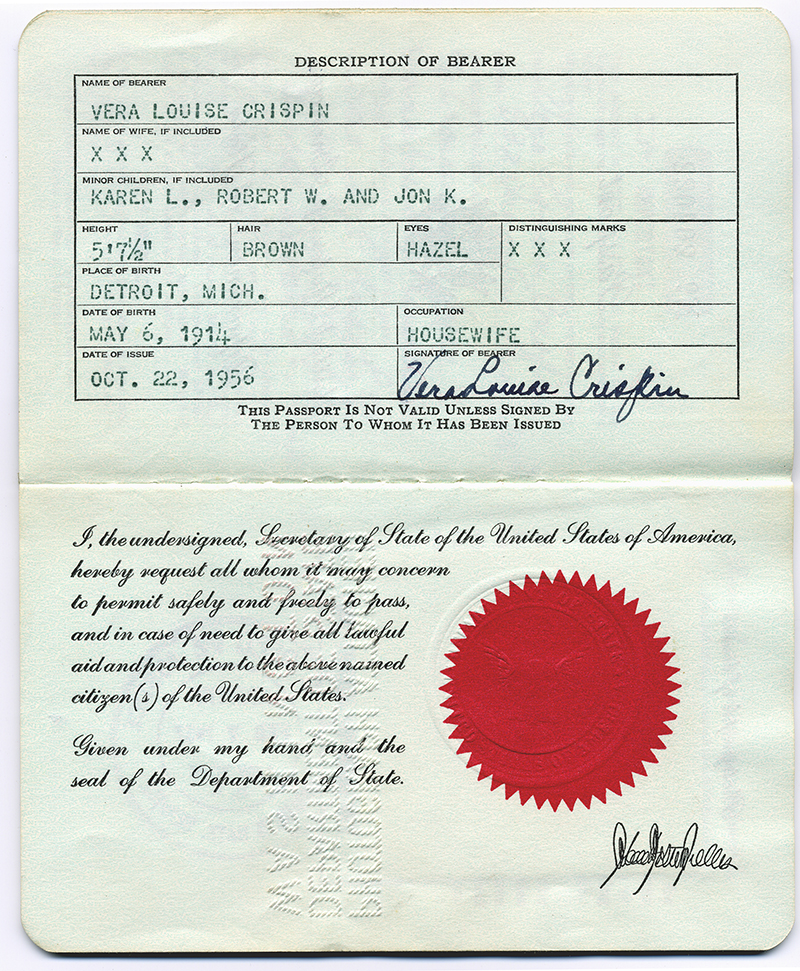 DESCRIPTION OF BEARER
NAME OF BEARER
VERA LOUISE CRISPIN
NAME OF WIFE, IF INCLUDED
X X X
MINOR CHILDREN, IF INCLUDED
KAREN L., ROBERT W. AND JON K.
HEIGHT HAIR EYES DISTINGUISHING MARKS
5'7½" BROWN HAZEL X X X
PLACE OF BIRTH
DETROIT, MICH.
DATE OF BIRTH OCCUPATION
MAY 6, 1914 HOUSEWIFE
DATE OF ISSUE SIGNATURE OF BEARER
OCT. 22, 1956 Vera Louise Crispin
THIS PASSPORT IS NOT VALID UNLESS SIGNED BY
THE PERSON TO WHOM IT HAS BEEN ISSUED
I, the undersigned, Secretary of State of the United States of America,
hereby request all whom it may concern
to permit safely and freely to pass,
and in case of need to give all lawful
aid and protection to the above named
citizen(s) of the United States.
Given under my hand and the
seal of the Department of State.